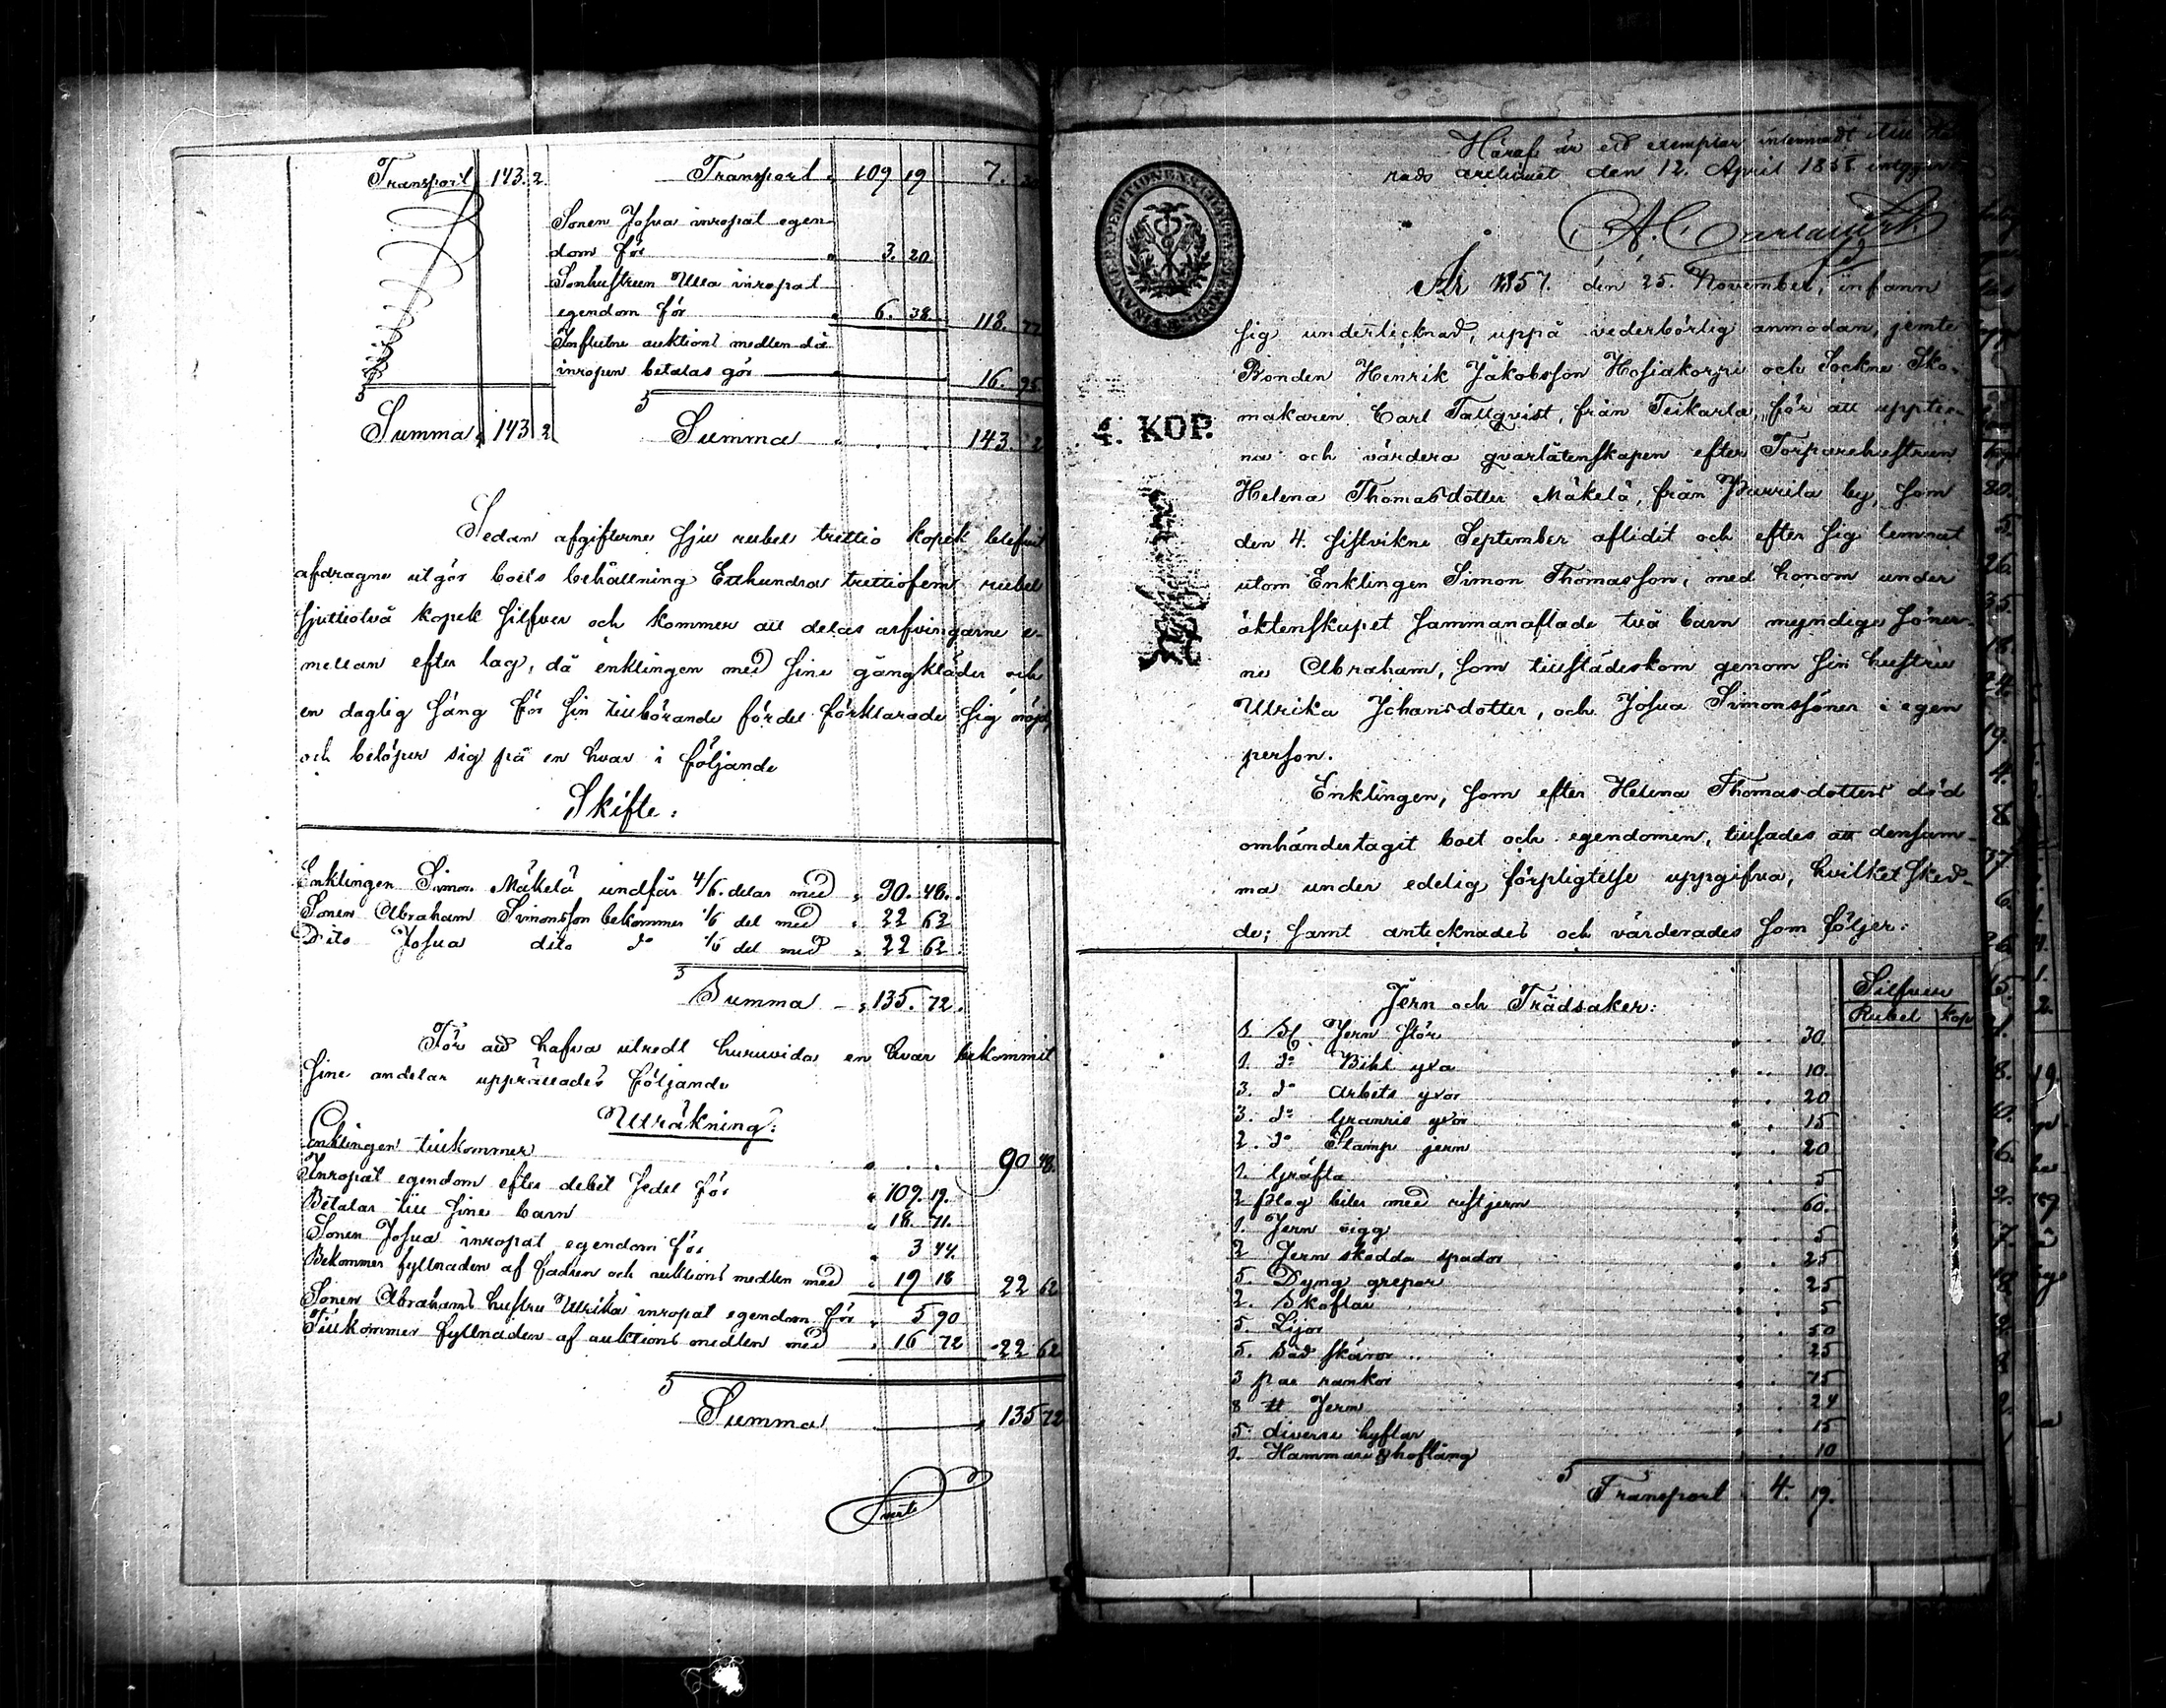 Transport 143. 2. Transport 109 19 7.
Sonen Josua inropat egen
dom för 3. 20
Sonhustrun Ulla inropat
egendom för 6. 38 118. 77
Influtne auktions medlen då
inropen betalas gör 16. 95
Summa 143 2 Summa 143. 2
Sedan afgifterne sju rubel trettio kopek blifvit
afdragne utgör boets behållning Etthundra trettiofem rubel
sjuttiotvå kopek silfver och kommer att delas arfvingarne e-
mellan efter lag, då enklingen med sine gångkläder och
en daglig säng för sin tillhörande fördel förklarade sig nöjd,
och belöper sig på en hvar i följande
Skifte:
Enklingen Simon Mäkelä undfår 4/6 delar med 90. 48.
Sonen Abraham Simonsson bekommer 1/6 del med 22 62
Dito Josua dito do 1/6 del med 22 62.
Summa 135. 72.
För att hafva utredt huruvida en hvar bekommit
sine andelar upprättades följande
Uträkning:
Enklingen tillkommer 90 48.
Inropat egendom efter debet sedel för 109. 19.
Betalar till sine barn 18. 71.
Sonen Josua inropat egendom för 3 44.
Bekommer fyllnaden af fadren och auktions medlen med 19 18 22 62
Sonen Abrahams hustru Ulrika inropat egendom för 5 90
Tillkommer fyllnaden af auktions medlen med 16 72 22 62
Summa 135 72
Vert
Häraf är ett exemplar inlemnadt till Hä
rads archivet den 12. April 1858. intygar
År 1857. den 25. November, infann
sig undertecknad, uppå vederbörlig anmodan, jemte
Bonden Henrik Jakobsson Hosiakorpi och Sockne Sko-
makaren Carl Tallqvist, från Teikarla, för att uppteck-
na och värdera qvarlåtenskapen efter Torparehustrun
Helena Thomasdotter Mäkelä, från by, som
den 4. sistvikne September aflidit och efter sig lemnat
utom Enklingen Simon Thomasson, med honom under
äktenskapet sammanaflade två barn myndige söner-
ne Abraham, som tillstädeskom genom sin hustru
Ulrika Johansdotter, och Josua Simonssöner i egen
person.
Enklingen, som efter Helena Thomasdotters död
omhändertagit boet och egendomen, tillsades att densam-
ma under edelig förpligtelse uppgifva, hvilket sked-
de; samt antecknades och värderades som följer:
4. KOP.
Jern och Trädsaker: Silfver
Rubel kop
1. St. Jern stör 30.
1. do Bihl yxa 10.
3. do Arbets yxor 20
3. do Granris yxor 15
2. do Stamp jern 20
1. Gräfta 5
2 plog biler med ristjern 60.
1. Jern vigg 5
2 Jern skodda spador 25
5. Dyng grepar 25
2. Skoflar 5
5. Lijor 50
5. Säd skäror 25
3 par rankor 75
8 ℔ Jern 24
5 diverse hyflar 15
1. Hammare & hoftång 10
Transport 4. 19.